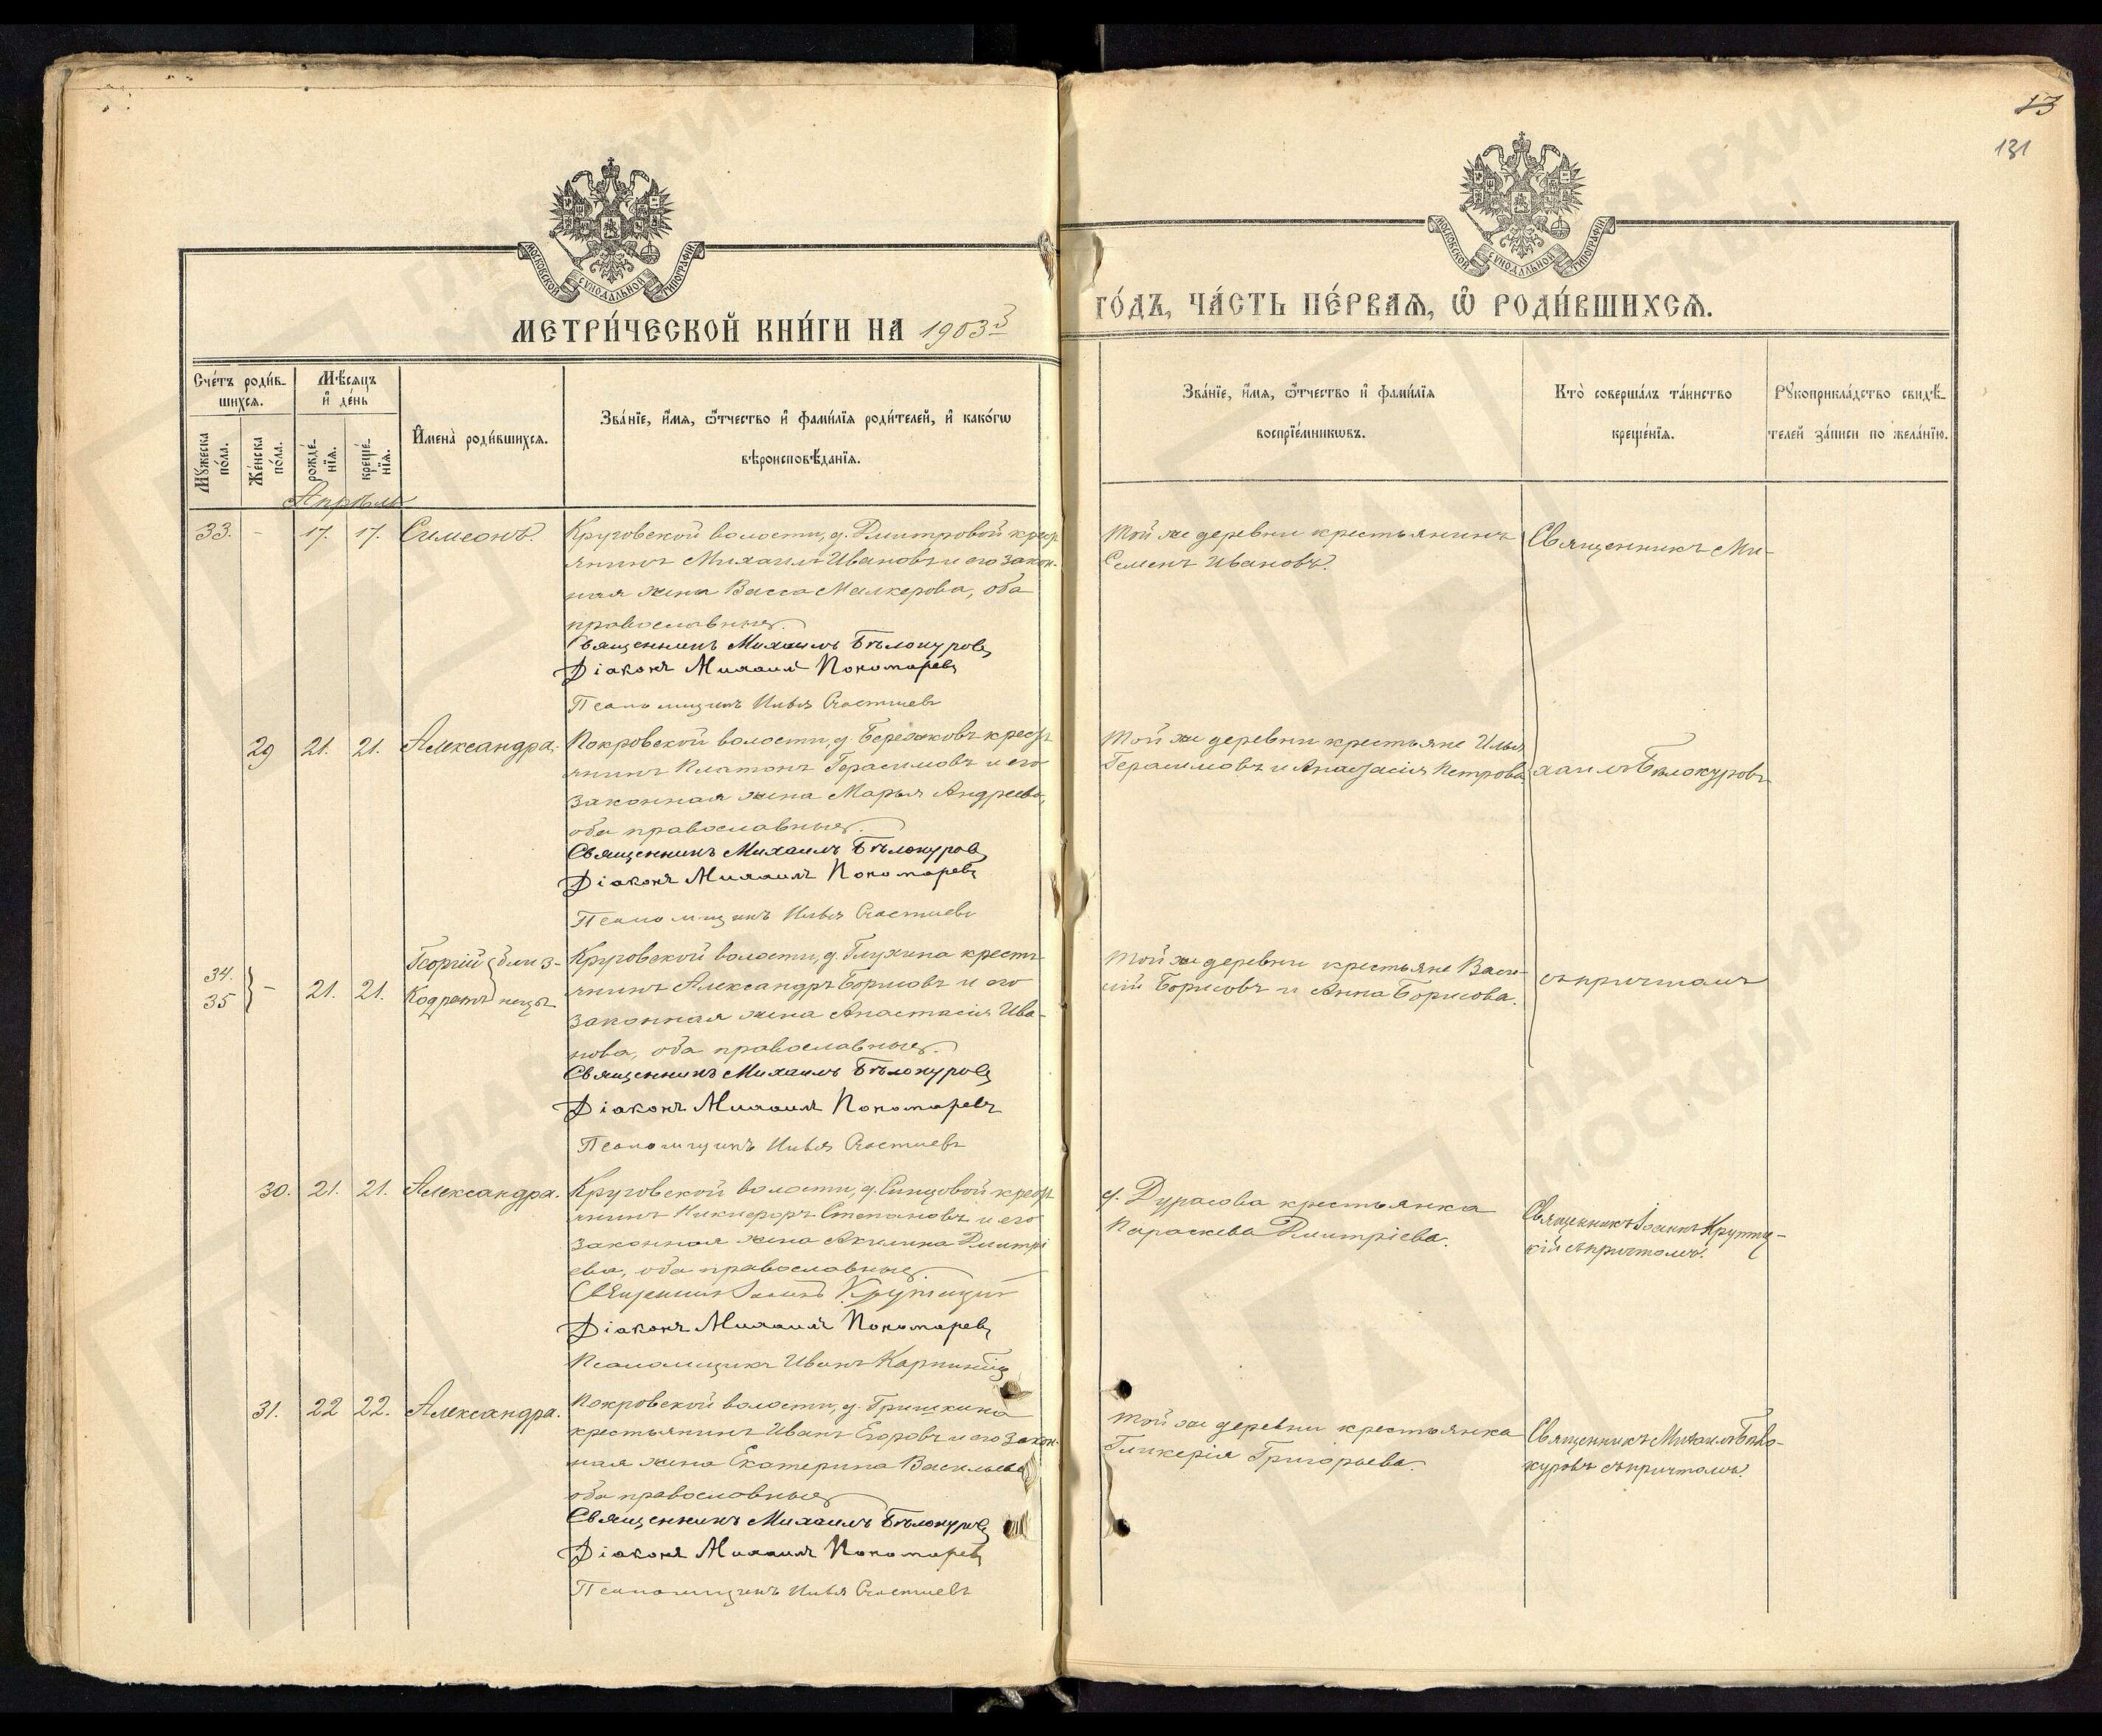 13
131
МОСКОВСКОЙ СУНОДАЛЬНОЙ ТИПОГРАФІИ
МОСКОВСКОЙ СУНОДАЛЬНОЙ ТИПОГРАФІИ
МЕТРИ́ЧЕСКОЙ КНИ́ГИ НА 1903й
ГО́ДЪ, ЧА́СТЬ ПЕ́РВАѦ, Ѡ҆ РОДИ́ВШИХСѦ.
Сче́тъ роди́в-
шихсѧ.
Мꙋ́жеска
по́ла.
Же́нска
по́ла.
Мѣ́сѧцъ
и҆ де́нь
рожде́-
нїѧ.
креще́-
нїѧ.
И҆мена̀ роди́вшихсѧ.
Зва́нїе, и҆́мѧ, ѻ҆́тчество и҆ фами́лїѧ роди́телей, и҆ како́гѡ
вѣроисповѣ́данїѧ.
Зва́нїе, и҆́мѧ, ѻ҆́тчество и҆ фами́лїѧ
воспрїе́мникѡвъ.
Кто̀ соверша́лъ та́инство
креще́нїѧ.
Рꙋкоприкла́дство свидѣ́-
телей за́писи по жела́нїю.
Апрѣль
33. - 17. 17. Симеонъ.
Круговской волости, д. Дмитровой крест
янинъ Михаилъ Ивановъ и его закон-
ная жена Васса Малкерова, оба
православные.
Священникъ Михаилъ Бѣлокуровъ
Діаконъ Михаилъ Пономаревъ
Псаломщикъ Илья Счастневъ
Той же деревни крестьянинъ
Семенъ Ивановъ.
Священникъ Ми-
29 21. 21. Александра.
Покровской волости, д. Бережковъ крест
янинъ Платонъ Герасимовъ и его
законная жена Марья Андреева,
оба православные.
Священникъ Михаилъ Бѣлокуровъ
Діаконъ Михаилъ Пономаревъ
Псаломщикъ Илья Счастневъ
Той же деревни крестьяне Илья
Герасимовъ и Анастасія Петрова
хаилъ Бѣлокуровъ
34.
35
- 21. 21.
Георгій близ-
Кодратъ нецы
Круговской волости, д. Глухина кресть-
янинъ Александръ Борисовъ и его
законная жена Анастасія Ива-
нова, оба православные.
Священникъ Михаилъ Бѣлокуровъ
Діаконъ Михаилъ Пономаревъ
Псаломщикъ Илья Счастневъ
Той же деревни крестьяне Васи-
лій Борисовъ и Анна Борисова.
съ причтомъ
30. 21. 21. Александра.
Круговской волости, д. Синцовой крест
янинъ Никифоръ Степановъ и его
законная жена Акилина Дмитрі
ева, оба православные.
Священникъ Іоаннъ Крутицкій
Діаконъ Михаилъ Пономаревъ
Псаломщикъ Иванъ
д. Дурасова крестьянка
Параскева Дмитріева.
Священникъ Іоаннъ Крутиц-
кій съ причтомъ.
31. 22 22. Александра.
Покровской волости, д. Гришкина
крестьянинъ Иванъ Егоровъ и его закон-
ная жена Екатерина Васильева
оба православные
Священникъ Михаилъ Бѣлокуровъ
Діаконъ Михаилъ Пономаревъ
Псаломщикъ Илья Счастневъ
Той же деревни крестьянка
Гликерія Григорьева.
Священникъ Михаилъ Бѣло-
куровъ съ причтомъ.
ГЛАВАРХИВ
МОСКВЫ